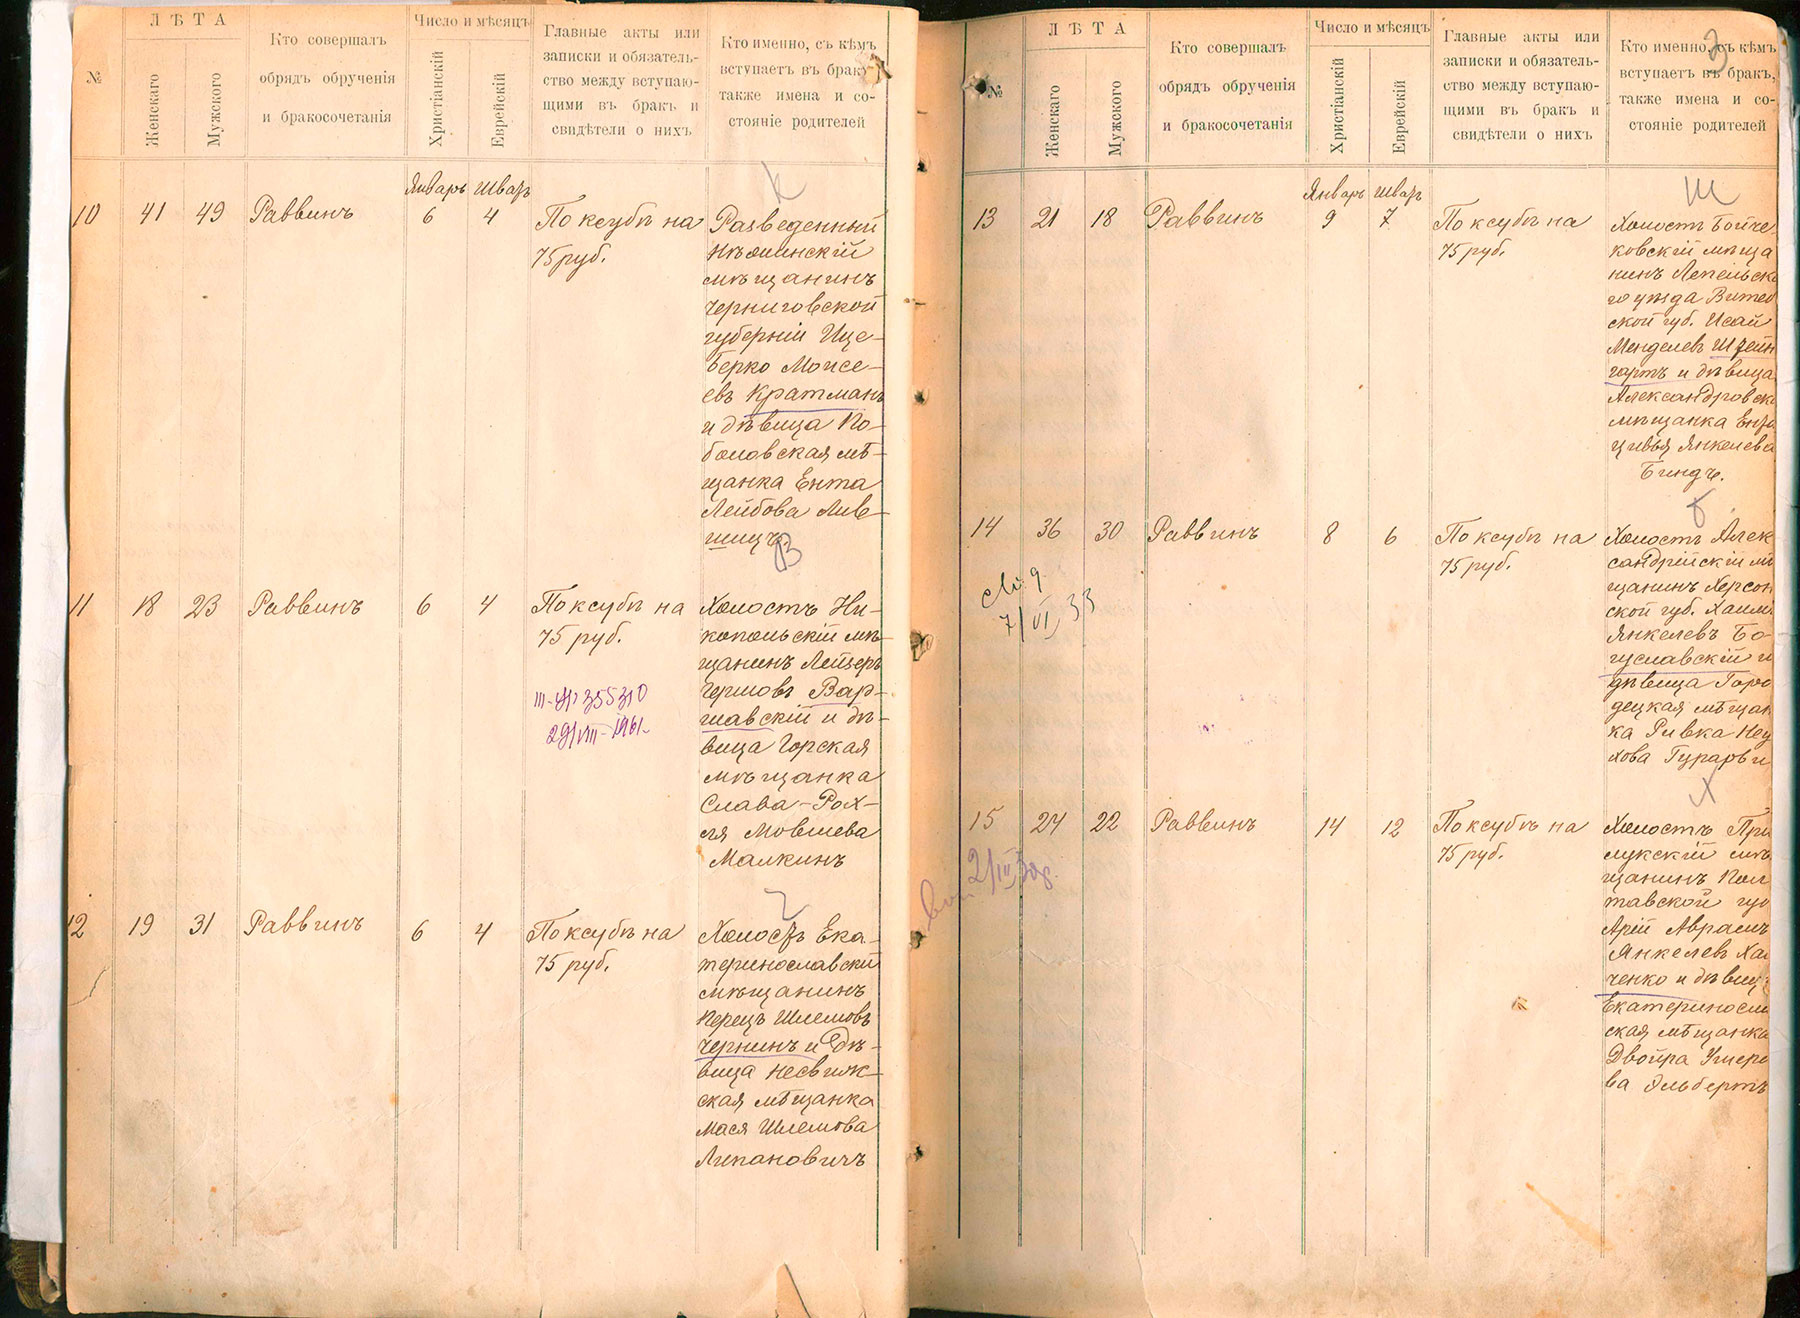 ЛѢТА
№
Женскаго
Мужского
Кто совершалъ
обрядъ обрученія
и бракосочетанія
Число и мѣсяцъ
Христіанскій
Еврейскій
Главные акты или
записки и обязатель-
ство между вступаю-
щими въ бракъ и
свидѣтели о нихъ
Кто именно, съ кѣмъ
вступаетъ въ бракъ,
также имена и со-
стояніе родителей
К
Январь Шватъ
10 41 49 Раввинъ 6 4
По ксубѣ на
75 руб.
Разведенный
Нѣжинскій
мѣщанинъ
Черниговской
губерніи Ице-
Берко Моисе-
евъ Кратманъ
и дѣвица По-
боловская мѣ-
щанка Ента
Лейбова Лив-
шицъ.
В
11 18 23 Раввинъ 6 4
По ксубѣ на
75 руб.
355310
29/VIII-1961
Холостъ Ни-
копольскій мѣ-
щанинъ Лейзеръ
Гершовъ Вар-
шавскій и дѣ-
вица Горская
мѣщанка
Слава-Рох-
ля Мовшева
Малкинъ
Ч
12 19 31 Раввинъ 6 4
По ксубѣ на
75 руб.
Холостъ Ека-
теринославскій
мѣщанинъ
Перецъ Шлемовъ
Чернинъ и дѣ-
вица Несвиж-
ская мѣщанка
Мася Шлемова
Липановичъ
3
ЛѢТА
№
Женскаго
Мужского
Кто совершалъ
обрядъ обрученія
и бракосочетанія
Число и мѣсяцъ
Христіанскій
Еврейскій
Главные акты или
записки и обязатель-
ство между вступаю-
щими въ бракъ и
свидѣтели о нихъ
Кто именно, съ кѣмъ
вступаетъ въ бракъ,
также имена и со-
стояніе родителей
Ш
Январь Шватъ
13 21 18 Раввинъ 9 7
По ксубѣ на
75 руб.
Холостъ Бойче-
ковскій мѣща
нинъ Лепельска
го уѣзда Витеб
ской губ. Исай
Менделевъ Штейн
гартъ и дѣвица
Александровск
мѣщанка Ента
Цивья Янкелева
Биндъ.
Б
14 36 30 Раввинъ 8 6
По ксубѣ на
75 руб.
7/VI 33
Холостъ Алек
сандрійскій мѣ
щанинъ Херсон
ской губ. Хаимъ
Янкелевъ Бо-
гуславскій и
дѣвица Горо
децкая мѣщан
ка Ривка Неу
хова Гурарьи
Х
15 24 22 Раввинъ 14 12
По ксубѣ на
75 руб.
Холостъ При
лукскій мѣ
щанинъ Пол
тавской гу
Арій Аврамъ
Янкелевъ Ха
ченко и дѣвиц
Екатеринослав
ская мѣщанка
Двойра Ушеро
ва Эльбертъ